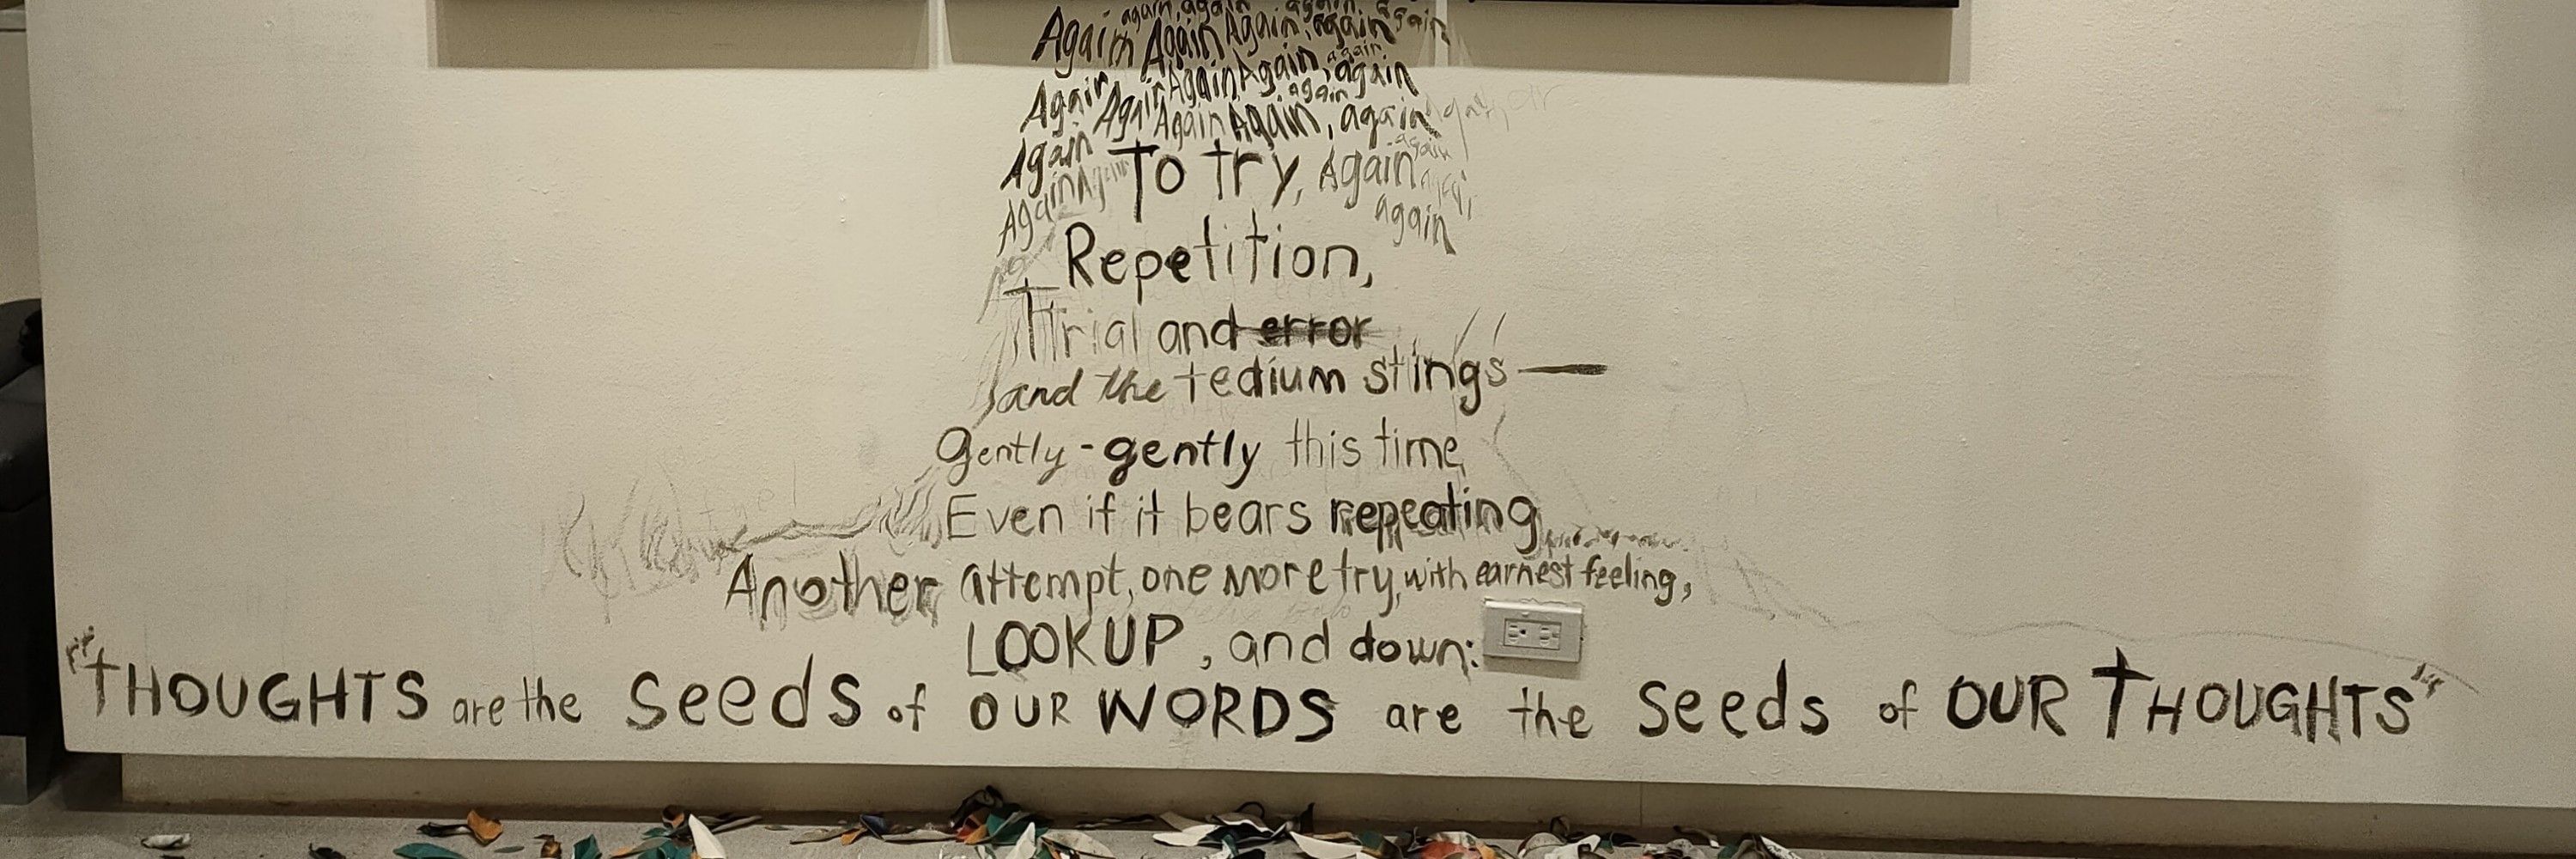 again, again again, again
Again Again Again, again again
again
Again Again Again Again, again
again
Again Again Again, again
Again To try, Again again
Again Again again
Repetition,
Trial and error
and the tedium stings —
gently - gently this time
Even if it bears repeating
Another attempt, one more try, with earnest feeling,
LOOK UP, and down:
"THOUGHTS are the seeds of OUR WORDS are the seeds of OUR THOUGHTS"